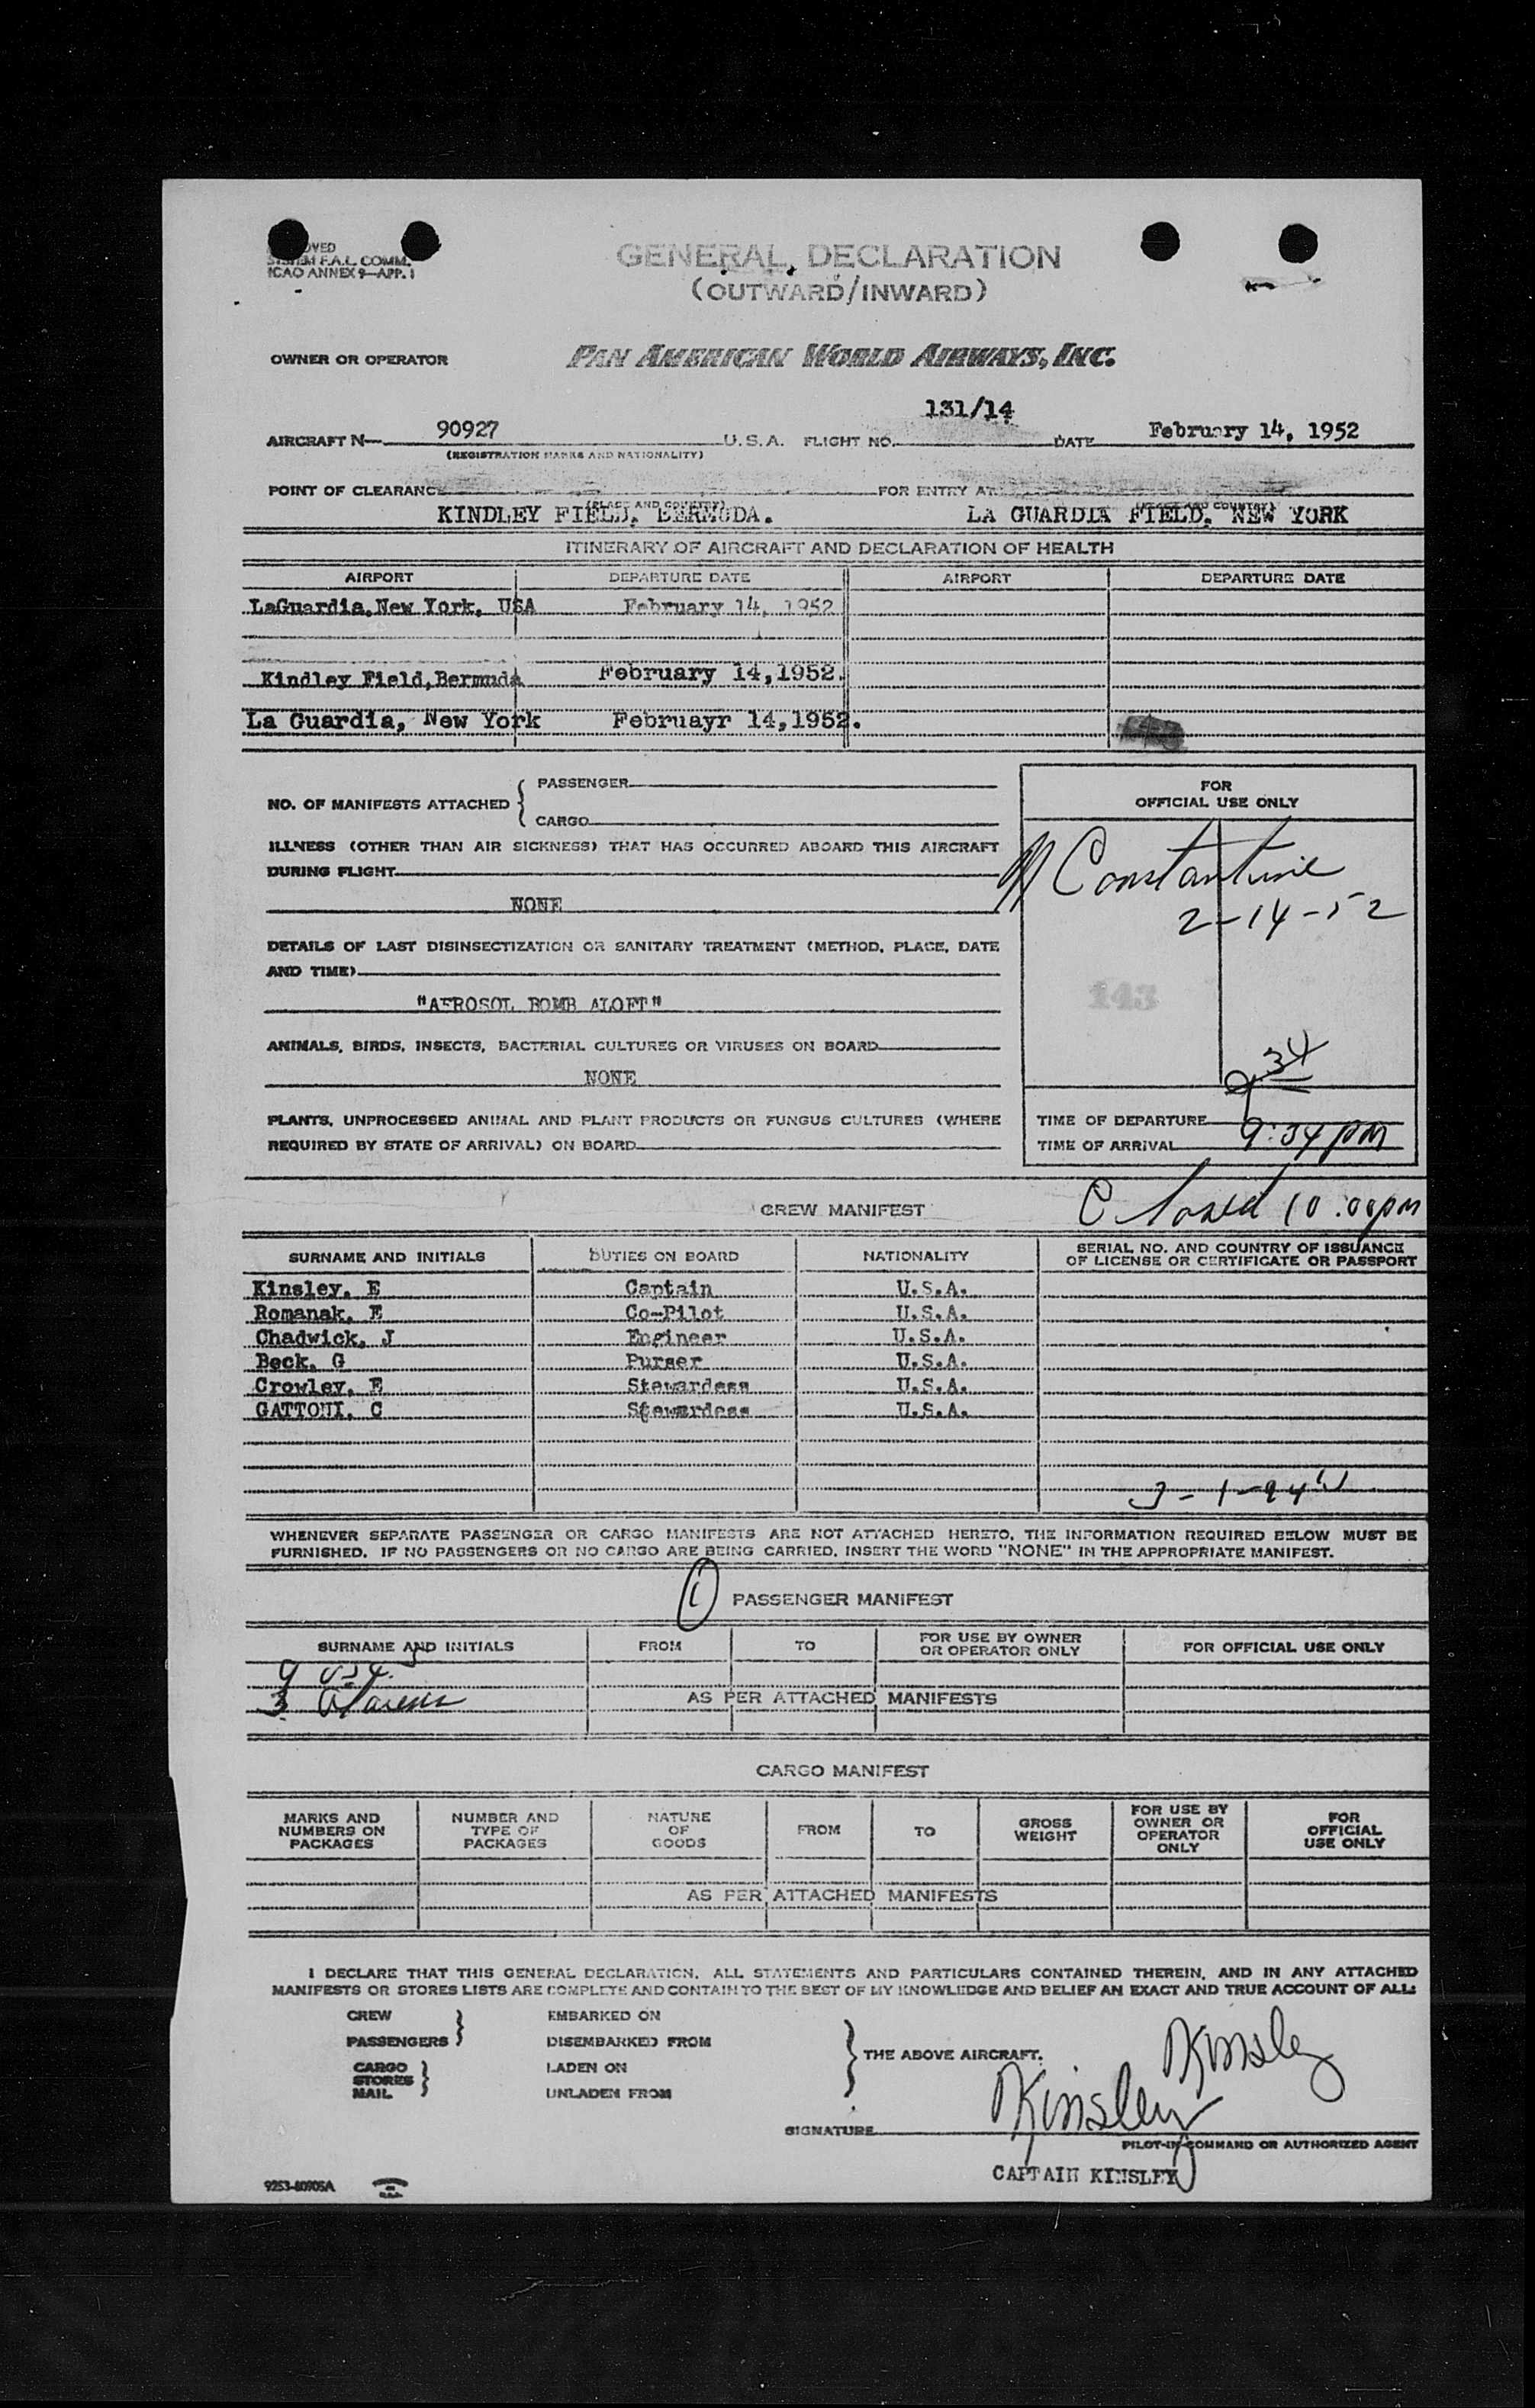 OVED
SYSTEM F.A.L. COMM.
ICAO ANNEX 9—APP. 1
GENERAL DECLARATION
(OUTWARD/INWARD)
OWNER OR OPERATOR PAN AMERICAN WORLD AIRWAYS, INC.
131/14
AIRCRAFT N— 90927 U.S.A. FLIGHT NO. DATE February 14, 1952
(REGISTRATION MARKS AND NATIONALITY)
POINT OF CLEARANCE FOR ENTRY AT
(PLACE AND COUNTRY)
KINDLEY FIELD, BERMUDA. LA GUARDIA FIELD, NEW YORK
ITINERARY OF AIRCRAFT AND DECLARATION OF HEALTH
AIRPORT DEPARTURE DATE AIRPORT DEPARTURE DATE
LaGuardia,New York, USA February 14, 1952
Kindley Field,Bermuda February 14,1952.
La Guardia, New York Februayr 14,1952.
NO. OF MANIFESTS ATTACHED { PASSENGER
CARGO
FOR
OFFICIAL USE ONLY
ILLNESS (OTHER THAN AIR SICKNESS) THAT HAS OCCURRED ABOARD THIS AIRCRAFT
DURING FLIGHT
Constantine
NONE
2-14-52
DETAILS OF LAST DISINSECTIZATION OR SANITARY TREATMENT (METHOD, PLACE, DATE
AND TIME)
143
"AEROSOL BOMB ALOFT"
ANIMALS, BIRDS, INSECTS, BACTERIAL CULTURES OR VIRUSES ON BOARD
NONE
PLANTS, UNPROCESSED ANIMAL AND PLANT PRODUCTS OR FUNGUS CULTURES (WHERE
REQUIRED BY STATE OF ARRIVAL) ON BOARD
TIME OF DEPARTURE
TIME OF ARRIVAL 9:34 pm
CREW MANIFEST
Closed 10:00pm
SURNAME AND INITIALS DUTIES ON BOARD NATIONALITY SERIAL NO. AND COUNTRY OF ISSUANCE
OF LICENSE OR CERTIFICATE OR PASSPORT
Kinsley, E Captain U.S.A.
Romanak, E Co-Pilot U.S.A.
Chadwick, J Engineer U.S.A.
Beck, G Purser U.S.A.
Crowley, E Stewardess U.S.A.
GATTONI, C Stewardess U.S.A.
WHENEVER SEPARATE PASSENGER OR CARGO MANIFESTS ARE NOT ATTACHED HERETO, THE INFORMATION REQUIRED BELOW MUST BE
FURNISHED. IF NO PASSENGERS OR NO CARGO ARE BEING CARRIED, INSERT THE WORD "NONE" IN THE APPROPRIATE MANIFEST.
PASSENGER MANIFEST
SURNAME AND INITIALS FROM TO FOR USE BY OWNER
OR OPERATOR ONLY FOR OFFICIAL USE ONLY
3 Aliens
AS PER ATTACHED MANIFESTS
CARGO MANIFEST
MARKS AND
NUMBERS ON
PACKAGES NUMBER AND
TYPE OF
PACKAGES NATURE
OF
GOODS FROM TO GROSS
WEIGHT FOR USE BY
OWNER OR
OPERATOR
ONLY FOR
OFFICIAL
USE ONLY
AS PER ATTACHED MANIFESTS
I DECLARE THAT THIS GENERAL DECLARATION, ALL STATEMENTS AND PARTICULARS CONTAINED THEREIN, AND IN ANY ATTACHED
MANIFESTS OR STORES LISTS ARE COMPLETE AND CONTAIN TO THE BEST OF MY KNOWLEDGE AND BELIEF AN EXACT AND TRUE ACCOUNT OF ALL:
CREW EMBARKED ON
PASSENGERS DISEMBARKED FROM
CARGO LADEN ON
STORES
MAIL UNLADEN FROM
THE ABOVE AIRCRAFT.
Kinsley
SIGNATURE Kinsley
PILOT-IN-COMMAND OR AUTHORIZED AGENT
CAPTAIN KINSLEY
9253-80905A